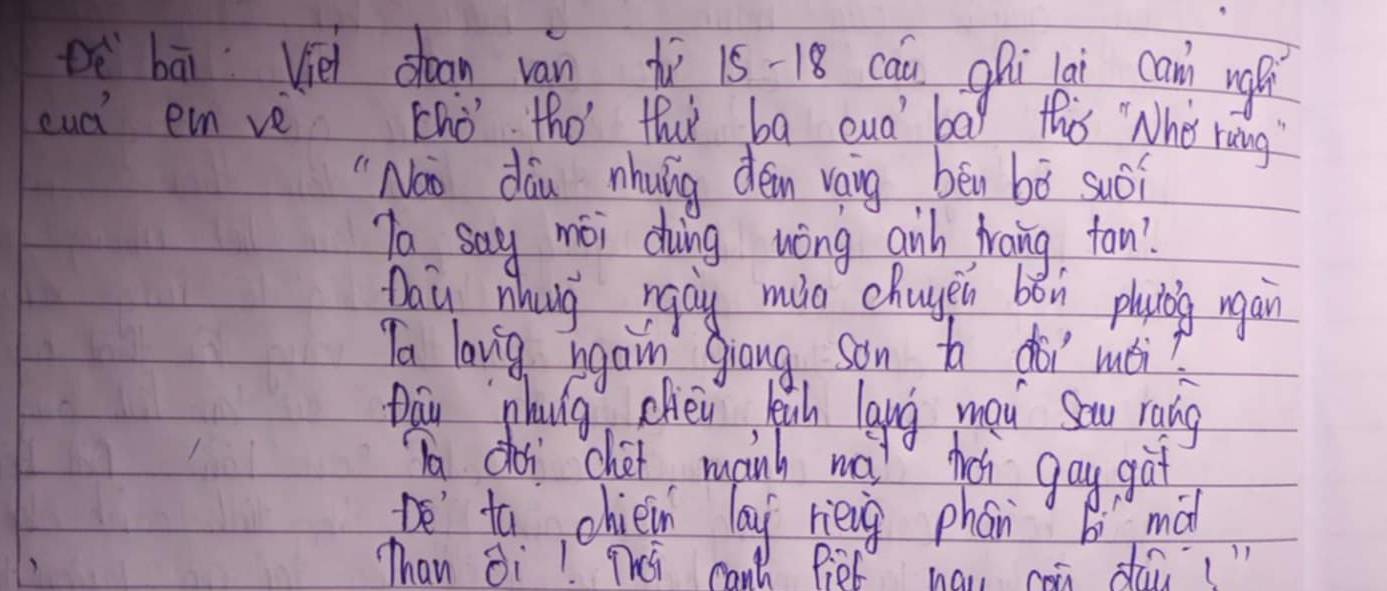 Đề bài: Viết đoạn văn từ 15-18 câu ghi lại cảm nghĩ
của em về khổ thơ thứ ba của bài thơ "Nhớ rừng"
"Nào đâu những đêm vàng bên bờ suối
Ta say mồi đứng uống ánh trăng tan?
Đâu những ngày mưa chuyển bốn phương ngàn
Ta lặng ngắm giang sơn ta đổi mới?
Đâu những chiều lênh láng máu sau rừng
Ta đợi chết mảnh mặt trời gay gắt
Để ta chiếm lấy riêng phần bí mật
Than ôi! Thời oanh liệt nay còn đâu?"